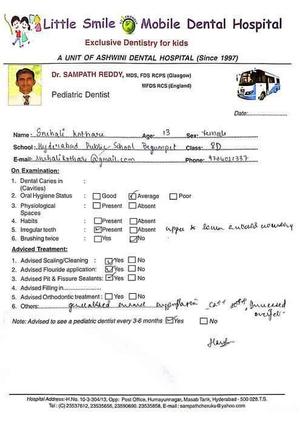 Little Smile Mobile Dental Hospital
Exclusive Dentistry for kids
A UNIT OF ASHWINI DENTAL HOSPITAL (Since 1997)
Dr. SAMPATH REDDY, MDS, FDS RCPS (Glasgow)
FDS RCS (England)
Pediatric Dentist
Date:
Name: Snehali Age: 13 Sex: female
School: Hyderabad Public School Begumpet Class: 8D
E-mail: @gmail.com Phone:
On Examination:
1. Dental Caries in (Cavities)
2. Oral Hygiene Status Good Average Poor
3. Physiological Spaces Present Absent
4. Habits Present Absent
5. Irregular teeth Present Absent upper & lower anterior crowding
6. Brushing twice Yes No
Adviced Treatment:
1. Advised Scaling/Cleaning Yes No
2. Advised Flouride application Yes No
3. Advised Pit & Fissure Sealants Yes No
4. Advised Filling in
5. Advised Orthodontic treatment Yes No
6. Others: generalised enamel hypoplasia increased overjet
Note: Advised to see a pediatric dentist every 3-6 months Yes No
Hospital Address: H.No. 10-3-304/13, Opp: Post Office, Humayunagar, Masab Tank, Hyderabad - 500 028.T.S.
Tel: (C) 23537612, 23535656, 23590690, Email: sampathcheruku@yahoo.com